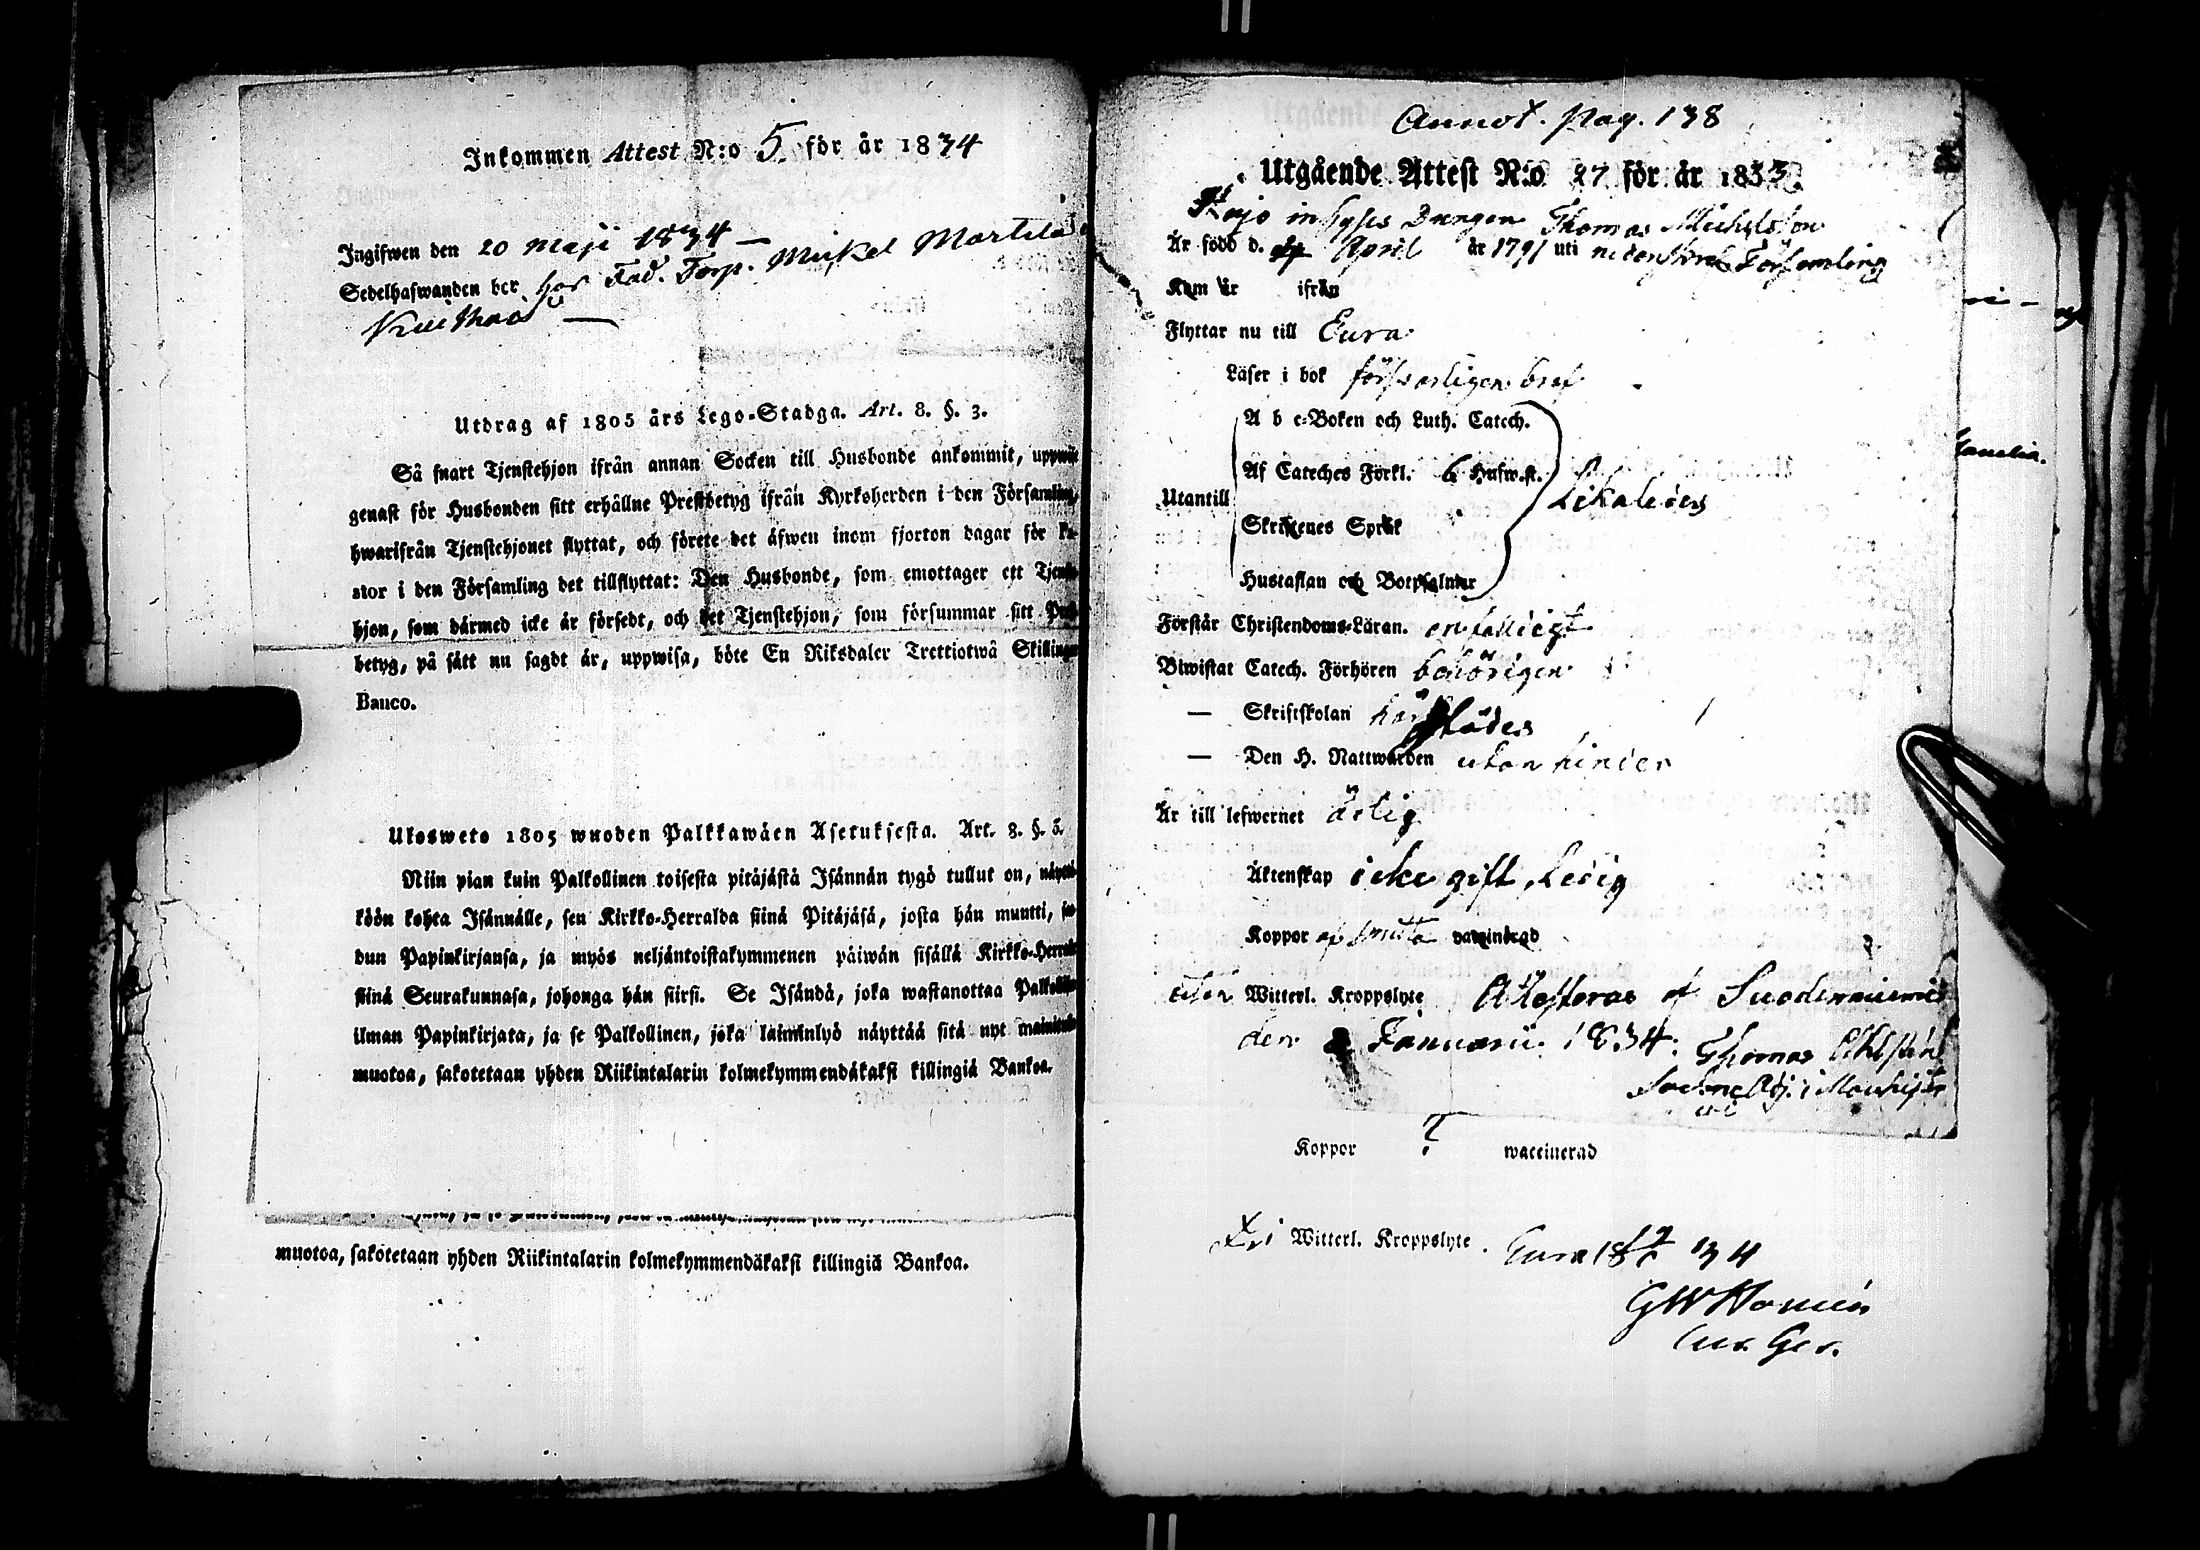 Inkommen Attest N:o 5 för år 1834
Ingifwen den 20 Maji 1834 —
Sedelhafwanden bor hos Torp. Mickel Martila
—
Utdrag af 1805 års Lego-Stadga. Art. 8. §. 3.
Så snart Tjenstehjon ifrån annan Socken till Husbonde ankommit,
genast för Husbonden sitt erhållne Prestbetyg ifrån Kyrkoherden i den Församling,
hwarifrån Tjenstehjonet flyttat, och förete det äfwen inom fjorton dagar för Pa-
stor i den Församling det tillflyttat: Den Husbonde, som emottager ett Tjenste-
hjon, som därmed icke är försedt, och det Tjenstehjon, som försummar sitt Prest-
betyg, på sätt nu sagdt är, uppwisa, böte En Riksdaler Trettiotwå Skillingar
Banco.
Ulosweto 1805 wuoden Palkkawäen Asetuksesta. Art. 8. §. 3.
Niin pian kuin Palkollinen toisesta pitäjästä Isännän tygö tullut on, näyttä-
köön kohta Isännälle, sen Kirkko-Herralda siinä Pitäjäsä, josta hän muutti, saa-
dun Papinkirjansa, ja myös neljäntoistakymmenen päiwän sisällä Kirkko-Herralle
siinä Seurakunnasa, johonga hän siirsi. Se Isändä, joka wastanottaa Palkollisen
ilman Papinkirjata, ja se Palkollinen, joka laiminlyö näyttää sitä nyt mainitulla
muotoa, sakotetaan yhden Riikintalarin kolmekymmendäkaksi killingiä Bankoa.
muotoa, sakotetaan yhden Riikintalarin kolmekymmendäkaksi killingiä Bankoa.
Annot. pag. 138
Utgående Attest N:o 27 för år 1833.
inhyses Drengen Thomas Michelsson
Är född d. April år 1791 uti Församling
Kom år ifrån
Flyttar nu till Eura
Läser i bok försvarligen bref
A b c-Boken och Luth. Catech.
Af Cateches Förkl. 6 Hufw.st.
Utantill Likaledes
Skriftenes Språk
Hustaflan och Botpsalmer
Förstår Christendoms-Läran. enfalligt
Biwistat Catech. Förhören behörigen
— Skriftskolan härstädes
— Den H. Nattwarden utan hinder
Är till lefwernet ärlig
Äktenskap icke gift, Ledig
Koppor af smitta vaccinerad
utan Witterl. Kroppslyte Attesteras af Suodenniemi
den Januarii 1834. Thomas
Adj. i
Koppor ? waccinerad
Fri Witterl. Kroppslyte. Eura 18 34